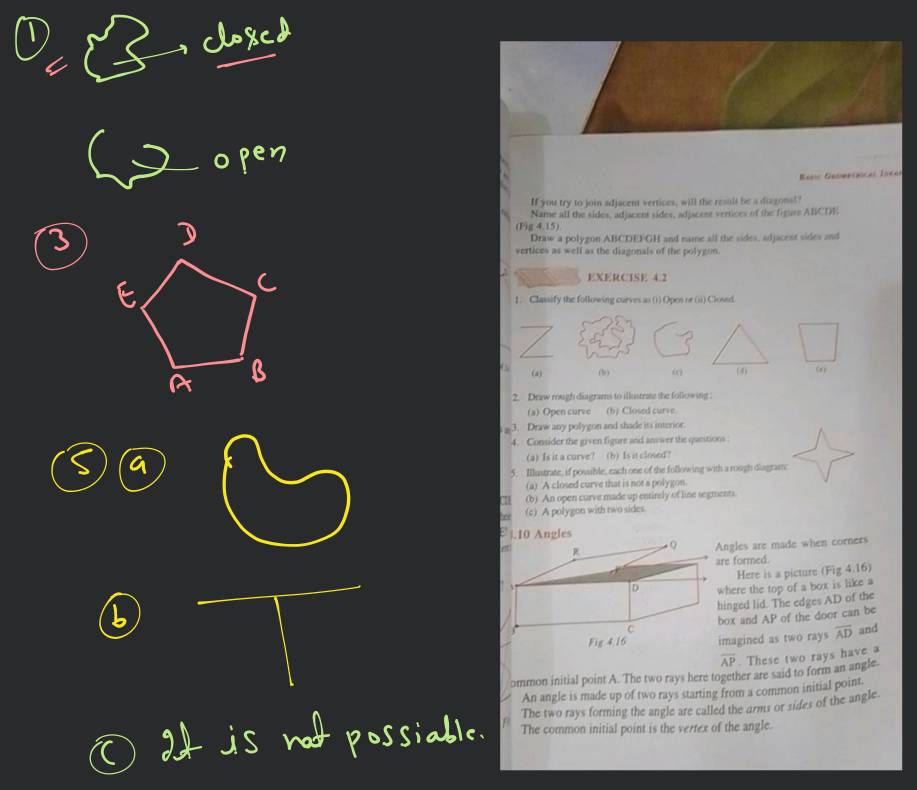 ① closed
open
③
D
E
C
A
B
⑤ ⓐ
ⓑ
ⓒ It is not possiable.
If you try to join adjacent vertices, will the result be a diagonal?
Name all the sides, adjacent sides, adjacent vertices of the figure ABCDE
(Fig 4.15).
Draw a polygon ABCDEFGH and name all the sides, adjacent sides and
vertices as well as the diagonals of the polygon.
EXERCISE 4.2
1. Classify the following curves as (i) Open or (ii) Closed.
(a) (b) (c) (d) (e)
2. Draw rough diagrams to illustrate the following :
(a) Open curve (b) Closed curve.
3. Draw any polygon and shade its interior.
4. Consider the given figure and answer the questions :
(a) Is it a curve? (b) Is it closed?
5. Illustrate, if possible, each one of the following with a rough diagram:
(a) A closed curve that is not a polygon.
(b) An open curve made up entirely of line segments.
(c) A polygon with two sides.
.10 Angles
R
Q
P
D
C
Fig 4.16
Angles are made when corners
are formed.
Here is a picture (Fig 4.16)
where the top of a box is like a
hinged lid. The edges AD of the
box and AP of the door can be
imagined as two rays AD and
AP. These two rays have a
ommon initial point A. The two rays here together are said to form an angle.
An angle is made up of two rays starting from a common initial point.
The two rays forming the angle are called the arms or sides of the angle.
The common initial point is the vertex of the angle.